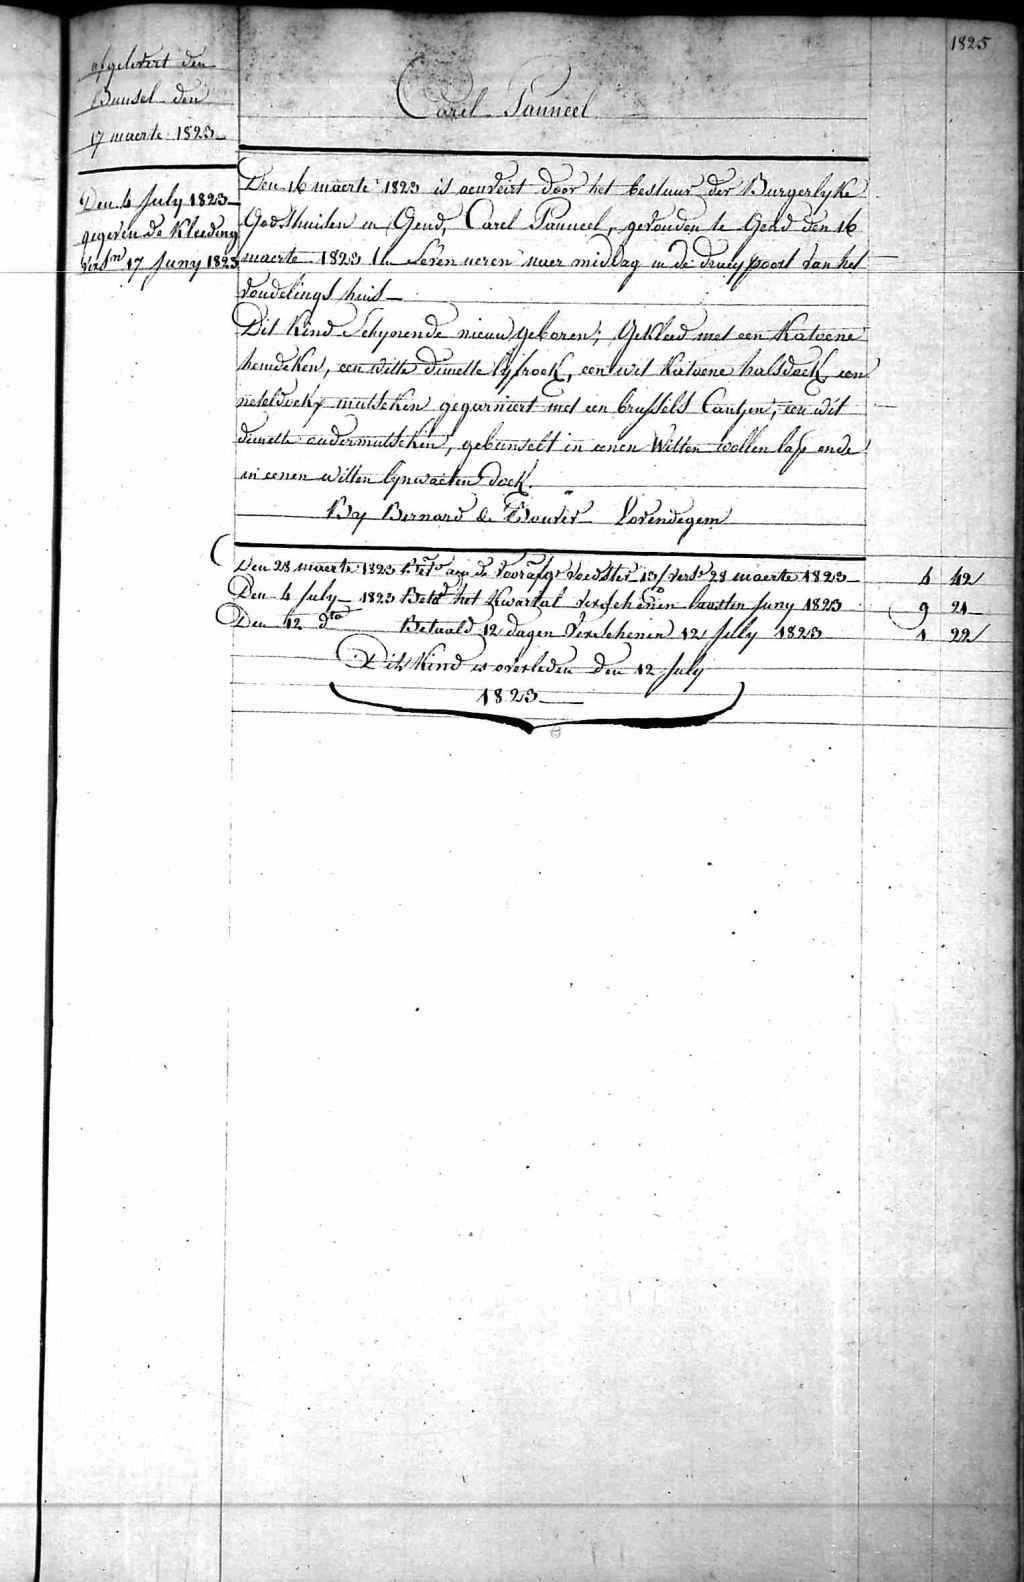 1825
afgelevert den
Bunsel den
17 maerte 1823
Carel Panneel
Den 4 July 1823
gegeven de Kleeding
versn 17 Juny 1823
Den 16 maerte 1823 is aenveirt door het bestuur der Burgerlyke
Godshuisen in Gend, Carel Panneel, gevonden te Gend den 16
maerte 1823 ten seven ueren naer middag in de draeypoort van het
vondelings huis
Dit Kind Schynende nieuw geboren; Gekleed met een Katoene
hemdeken, een witte dimette lyfrock, een wit Katoene halsdoek, een
neteldoek mutseken gegarniert met een brussels Cantjen, een wit
dimette ondermutseken, gebunselt in eenen Witten wollen lap ende
in eenen witten lynwaeten doek.
By Bernard de Lovendegem
Den 28 maerte 1823 aen de voorafgr voedster 13/ versn 28 maerte 1823 4 42/
Den 4 July 1823 Betd het Kwartal verschenen laesten Juny 1823 9 21
Den 12 dto Betaald 12 dagen verschenen 12 July 1823 1 22/
Dits Kind is overleden Den 12 July
1823